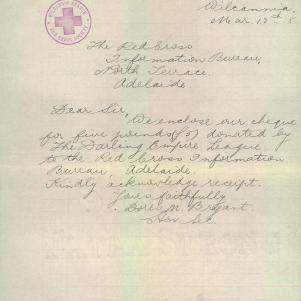 WILCANNIA BRANCH
RED CROSS SOCIETY
Wilcannia.
Mar. 12th
The Red Cross
Information Bureau,
North Terrace,
Adelaide
Dear Sir,
We enclose our cheque
for five pounds (£5) donated by
The Darling Empire League
to the Red Cross Information
Bureau, Adelaide.
Kindly acknowledge receipt.
Yours faithfully
Doris M. Bryant
Hon Sec.